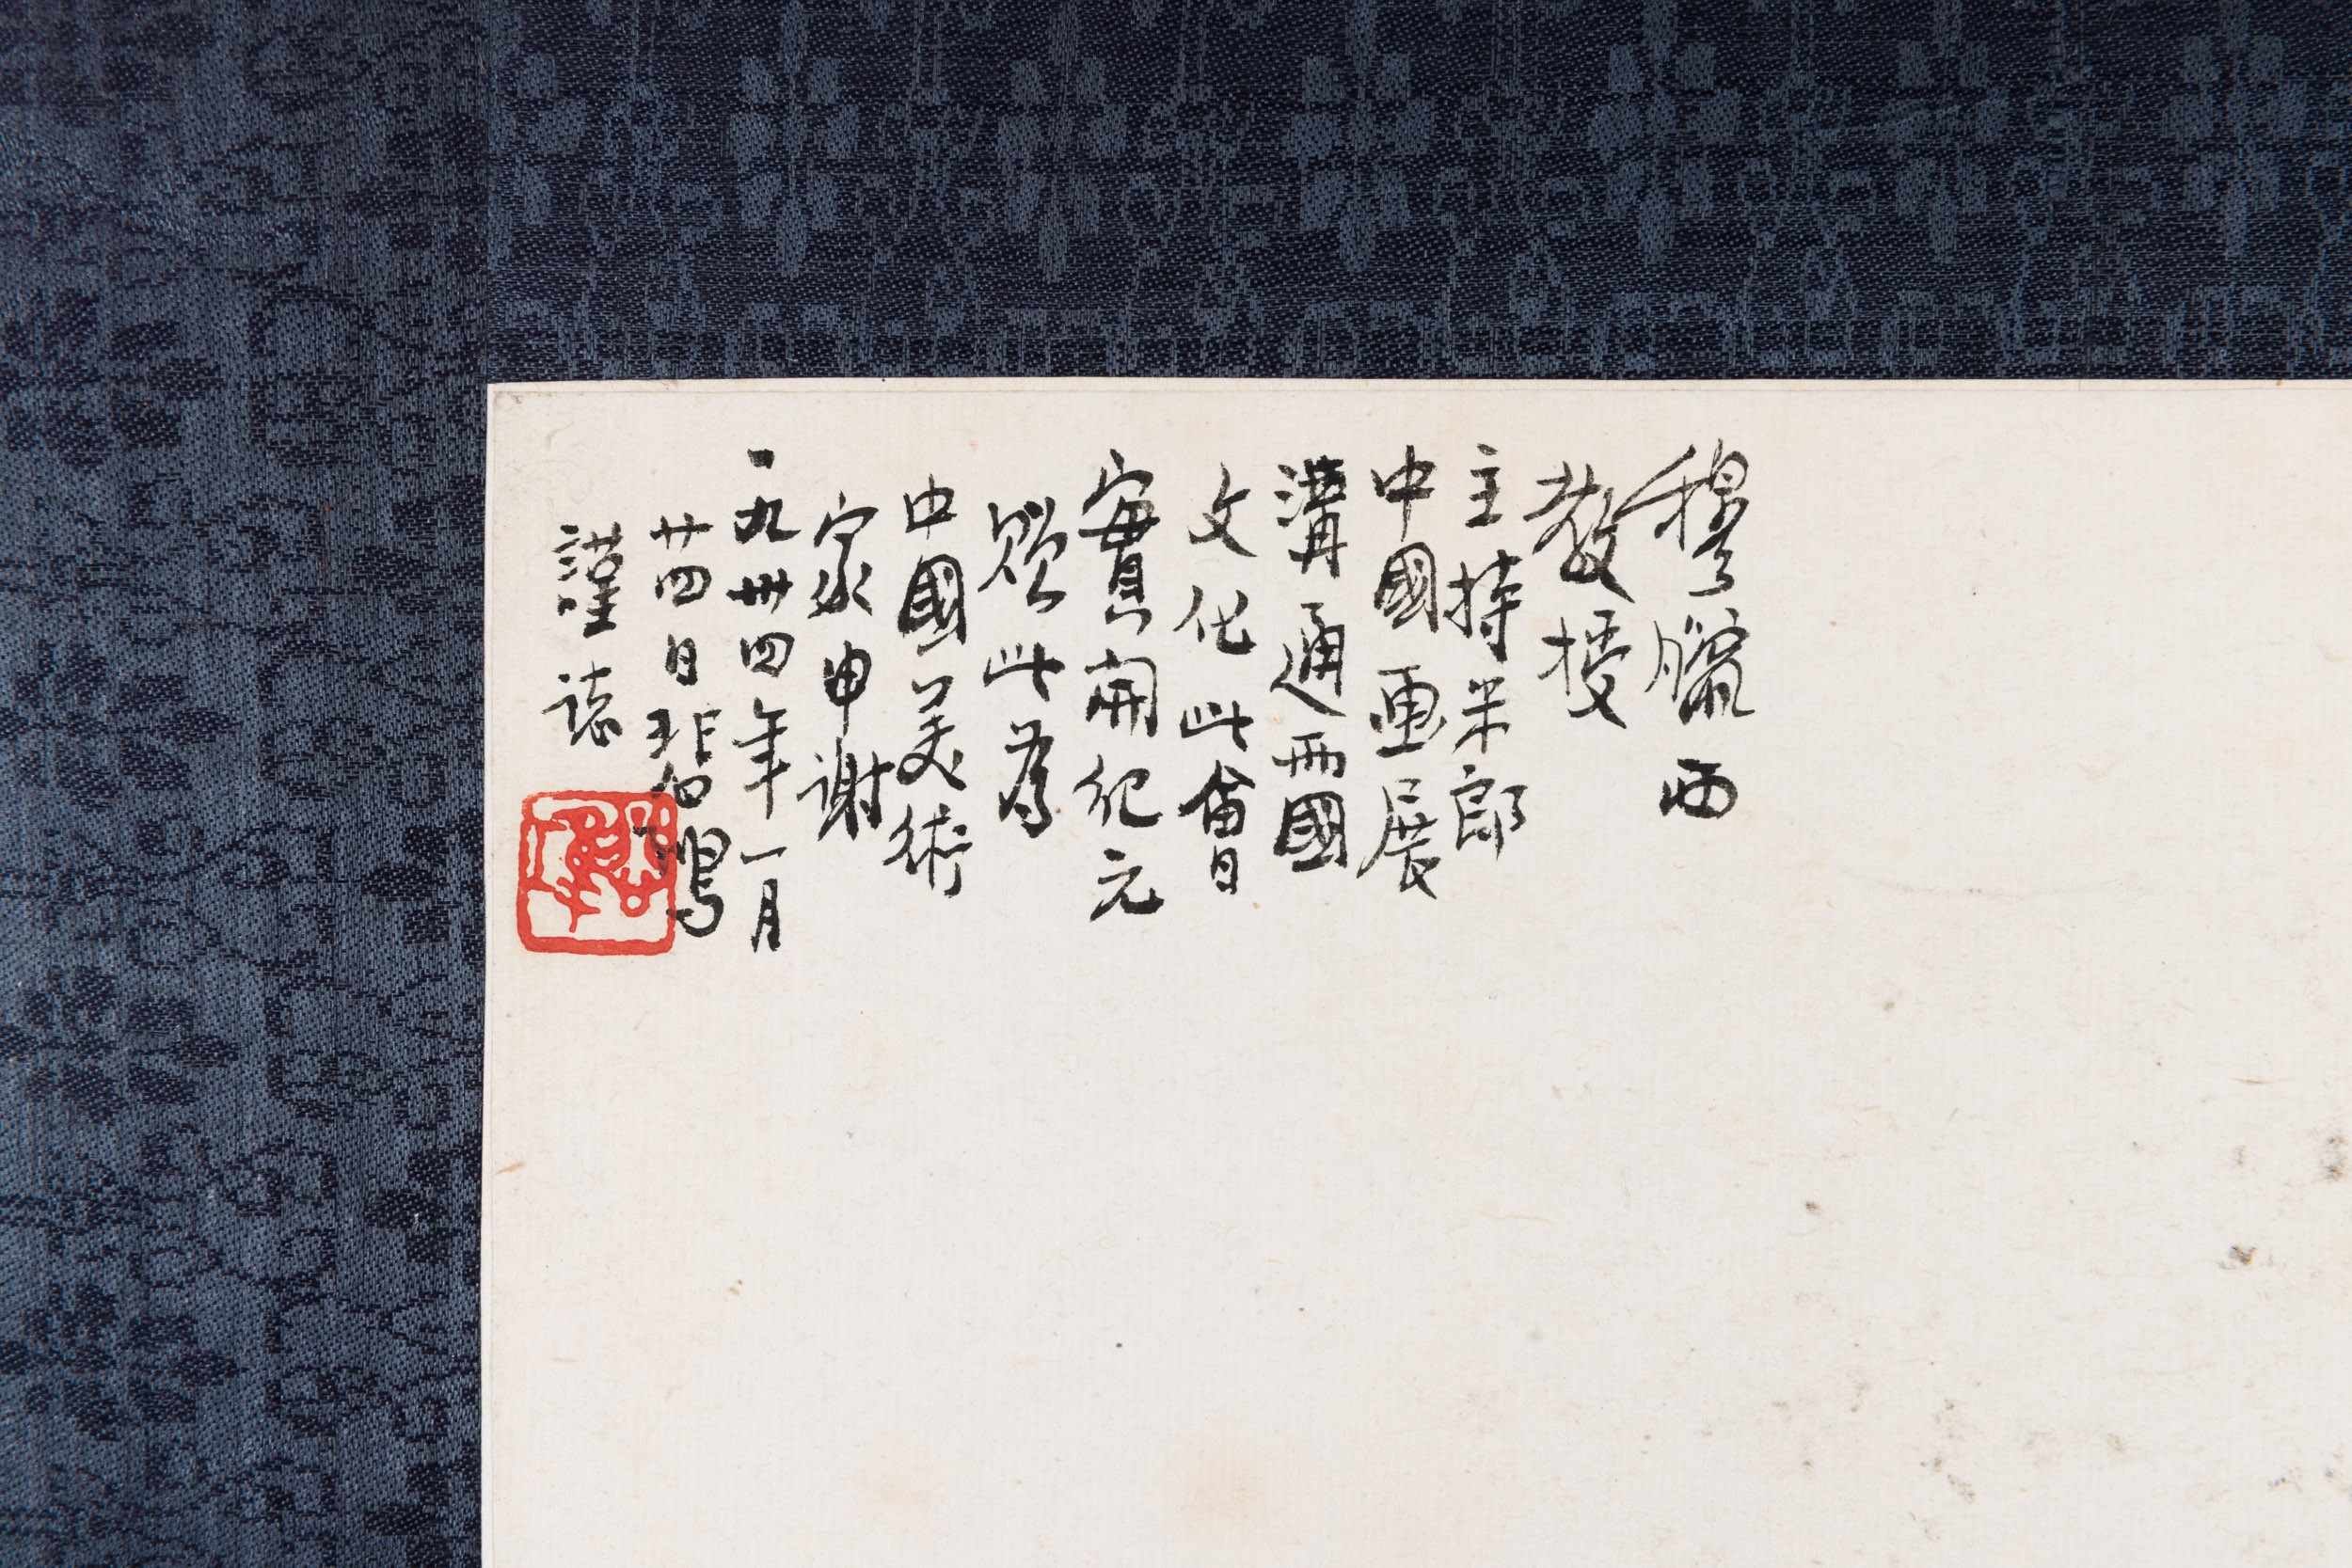 穆懶西
教授
主持米郎
中國画展
溝通兩國
文化此舉
實開紀元
欣此為
中國美術
家申謝
一九卅四年一月
廿四日悲鴻
謹誌